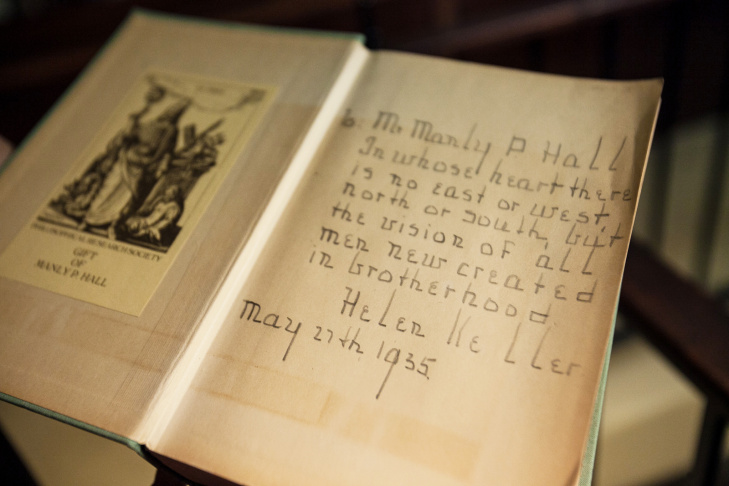 PHILOSOPHICAL RESEARCH SOCIETY
GIFT
OF
MANLY P. HALL
to Mr Manly P Hall
In whose heart there
is no east or west,
north or south, but
the vision of all
men new created
in brotherhood.
Helen Keller
May 27th 1935.